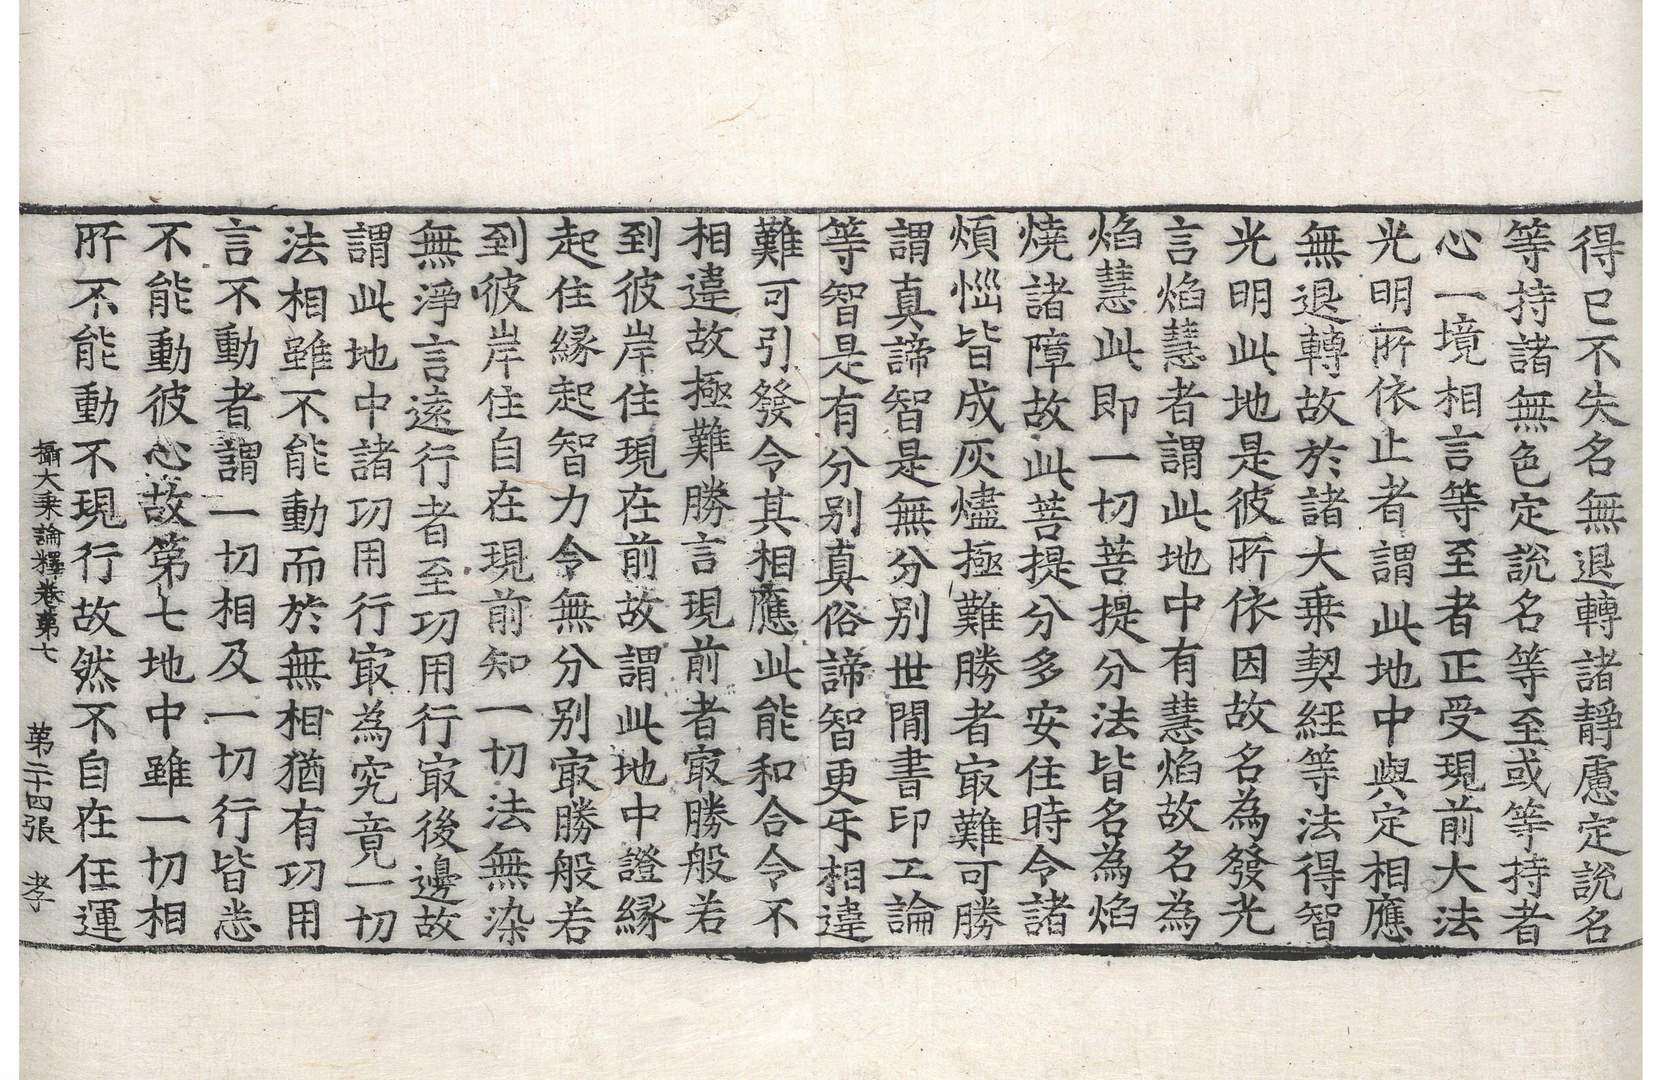 得已不失名無退轉諸靜慮定說名
等持諸無色定說名等至或等持者
心一境相言等至者正受現前大法
光明所依止者謂此地中與定相應
無退轉故於諸大乘契經等法得智
光明此地是彼所依因故名為發光
言焰慧者謂此地中有慧焰故名為
焰慧此即一切菩提分法皆名為焰
燒諸障故此菩提分多安住時令諸
煩惱皆成灰燼極難勝者㝡難可勝
謂真諦智是無分别世間書印工論
等智是有分别真俗諦智更乐相違
難可引發令其相應此能和合令不
相違故極難勝言現前者㝡勝般若
到彼岸住現在前故謂此地中證緣
起住緣起智力令無分别㝡勝般若
到彼岸住自在現前知一切法無染
無淨言遠行者至功用行㝡後邊故
謂此地中諸功用行㝡為究竟一切
法相雖不能動而於無相猶有功用
言不動者謂一切相及一切行皆悉
不能動彼心故第七地中雖一切相
所不能動不現行故然不自在任運
攝大乘論釋卷第七　第二十四張　孝